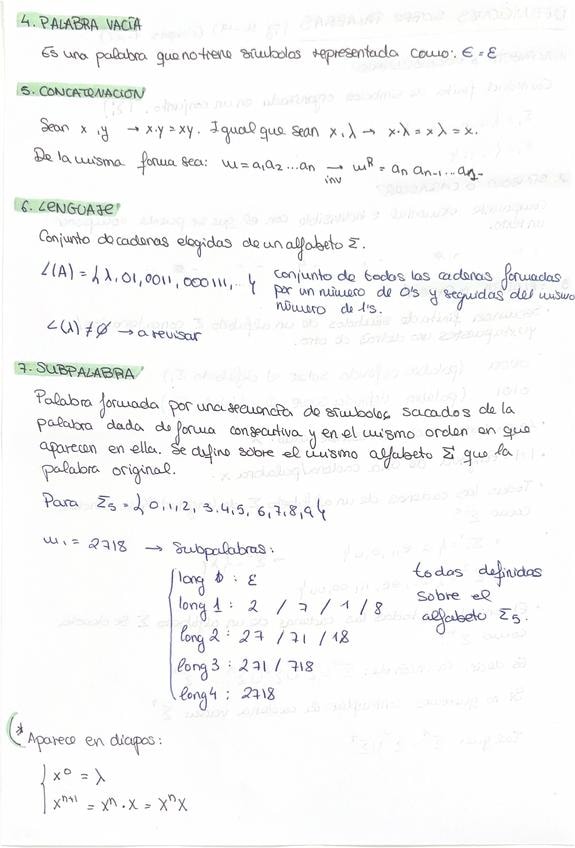 4. PALABRA VACÍA
Es una palabra que no tiene símbolos representada como: Є = ε
5. CONCATENACIÓN
Sean x, y → x·y = xy. Igual que sean x, λ → x·λ = xλ = x.
De la misma forma sea: w = a₁a₂...aₙ →inv wᴿ = aₙ aₙ₋₁...a₁.
6. LENGUAJE
Conjunto de cadenas elegidas de un alfabeto Σ.
L(A) = {λ, 01, 0011, 000111, ...} conjunto de todas las cadenas formadas
por un número de 0's y seguidas del mismo
número de 1's.
L(λ) ≠ ∅ → a revisar
7. SUBPALABRA
Palabra formada por una secuencia de símbolos sacados de la
palabra dada de forma consecutiva y en el mismo orden en que
aparecen en ella. Se define sobre el mismo alfabeto Σ que la
palabra original.
Para Σ₅ = {0,1,2,3,4,5,6,7,8,9}
w₁ = 2718 → Subpalabras:
long 0 : ε
long 1 : 2 / 7 / 1 / 8
long 2 : 27 / 71 / 18
long 3 : 271 / 718
long 4 : 2718
todas definidas
sobre el
alfabeto Σ₅.
(* Aparece en diapos:
x⁰ = λ
xⁿ⁺¹ = xⁿ · x = xⁿx